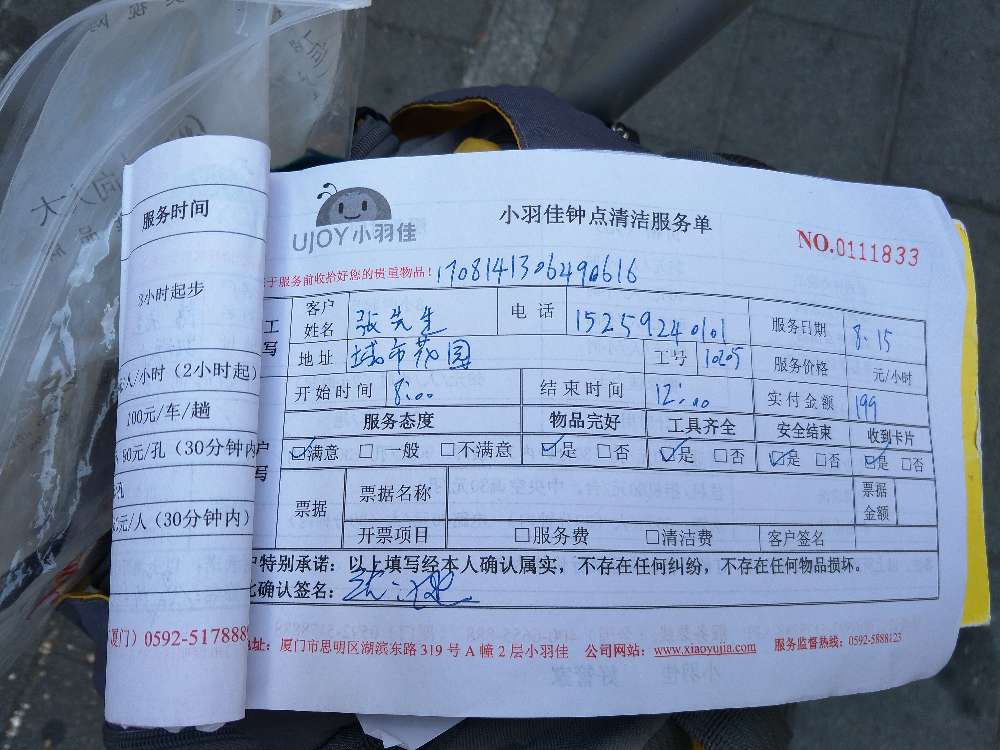 服务时间
3小时起步
/人/小时（2小时起）
100元/车/趟
90元/孔（30分钟内
元/人（30分钟内）
厦门）0592-517888
UJOY小羽佳
小羽佳钟点清洁服务单
NO.0111833
于服务前收拾好您的贵重物品！1708141306490616
客户姓名 张先生 电话 15259240101 服务日期 8.15
地址 城市花园 工号 10205 服务价格 元/小时
开始时间 8:00 结束时间 12:00 实付金额 199
服务态度 物品完好 工具齐全 安全结束 收到卡片
☑满意 □一般 □不满意 ☑是 □否 ☑是 □否 ☑是 □否 ☑是 □否
票据 票据名称 票据金额
开票项目 □服务费 □清洁费 客户签名
户特别承诺：以上填写经本人确认属实，不存在任何纠纷，不存在任何物品损坏。
确认签名：
址：厦门市思明区湖滨东路319号A幢2层小羽佳 公司网站：www.xiaoyujia.com 服务监督热线：0592-5888123